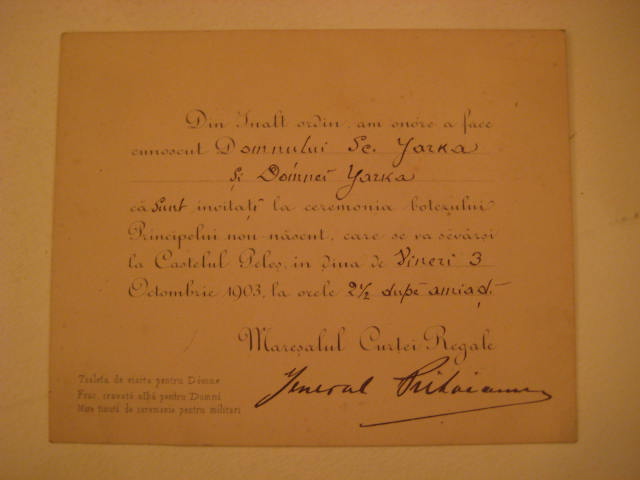 Din Inalt ordin, am onóre a face
cunoscut Domnului Sc. Yarka
și Dómnei Yarka
că sunt invitați la ceremonia botezului
Principelui nou-născut, care se va sevârși
la Castelul Peleș, in ḑiua de Vineri 3
Octombrie 1903, la orele 2½ dupĕ amiaḑi.
Mareșalul Curței Regale
General
Toaleta de visita pentru Dómne
Frac, cravată albă pentru Domni
Mare ținută de ceremonie pentru militari